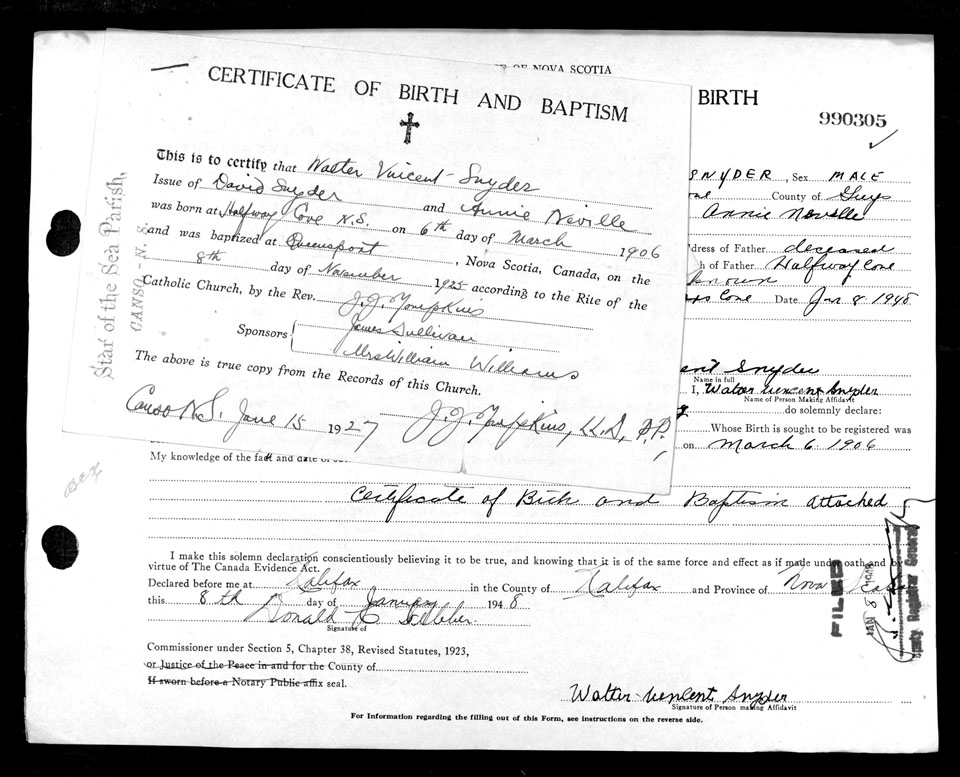 OF NOVA SCOTIA
BIRTH
990305
CERTIFICATE OF BIRTH AND BAPTISM
This is to certify that Walter Vincent Snyder
Issue of David Snyder and Annie Neville
was born at Halfway Cove N.S. on 6th day of March 1906
and was baptized at Queensport, Nova Scotia, Canada, on the
8th day of November 1925 according to the Rite of the
Catholic Church, by the Rev. J.J. Tompkins
Sponsors { James Sullivan
Mrs William Williams
The above is true copy from the Records of this Church.
Canso N.S. June 15 1927 J.J. Tompkins, LL.D., P.P.
Star of the Sea Parish,
CANSO - N. S.
SNYDER, Sex MALE
County of Guys
Annie Neville
dress of Father deceased
h of Father Halfway Cove
known
Cove Date Jan 8 1948
ent Snyder
Name in full
I, Walter Vencent Snyder
Name of Person Making Affidavit
do solemnly declare:
Whose Birth is sought to be registered was
on March 6. 1906
My knowledge of the fact and date of
Certificate of Birth and Baptism attached
I make this solemn declaration conscientiously believing it to be true, and knowing that it is of the same force and effect as if made under oath and by
virtue of The Canada Evidence Act.
Declared before me at Halifax in the County of Halifax and Province of Nova Scotia
this 8th day of January 1948
Ronald C
Signature of
Commissioner under Section 5, Chapter 38, Revised Statutes, 1923,
or Justice of the Peace in and for the County of
If sworn before a Notary Public affix seal.
Walter Vencent Snyder
Signature of Person making Affidavit
For Information regarding the filling out of this Form, see instructions on the reverse side.
FILED
JAN 8 1948
Deputy Registrar General